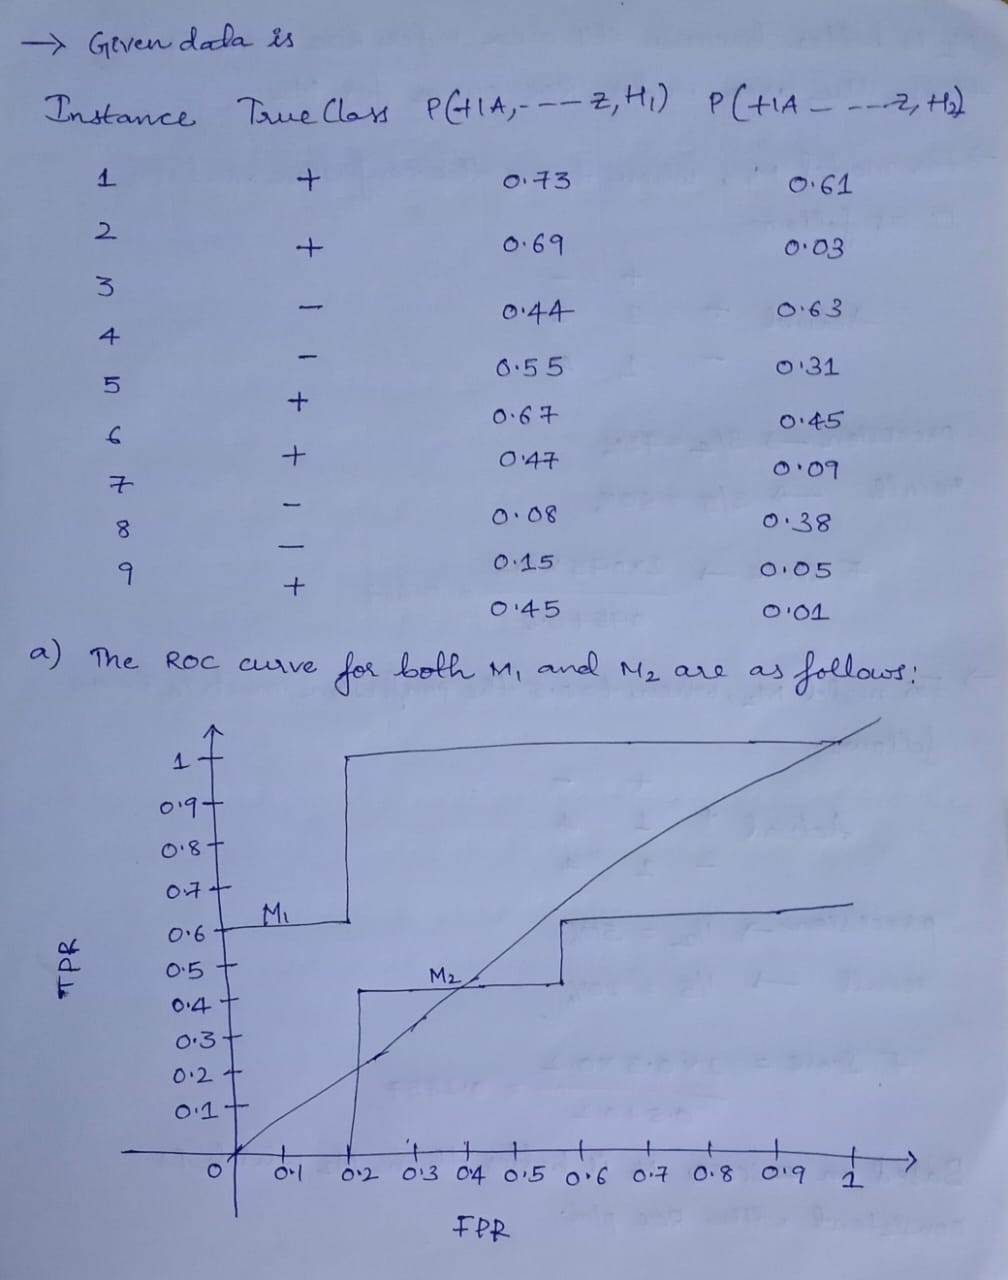 → Given data is
Instance True Class P(+1A,- --- z, H1) P(+1A - ---z, H2)
1 + 0.73 0.61
2 + 0.69 0.03
3 - 0.44 0.63
4 - 0.55 0.31
5 + 0.67 0.45
6 + 0.47 0.09
7 - 0.08 0.38
8 - 0.15 0.05
9 + 0.45 0.01
a) The ROC curve for both M1 and M2 are as follows:
1
0.9
0.8
0.7
M1
0.6
0.5
M2
0.4
0.3
0.2
0.1
TPR
0 0.1 0.2 0.3 0.4 0.5 0.6 0.7 0.8 0.9 1
FPR